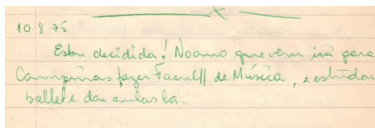 10.8.75
Estou decidida! No ano que vem irei para
Campinas fazer Facul// de Música, e estudar
ballet e dar aulas lá.